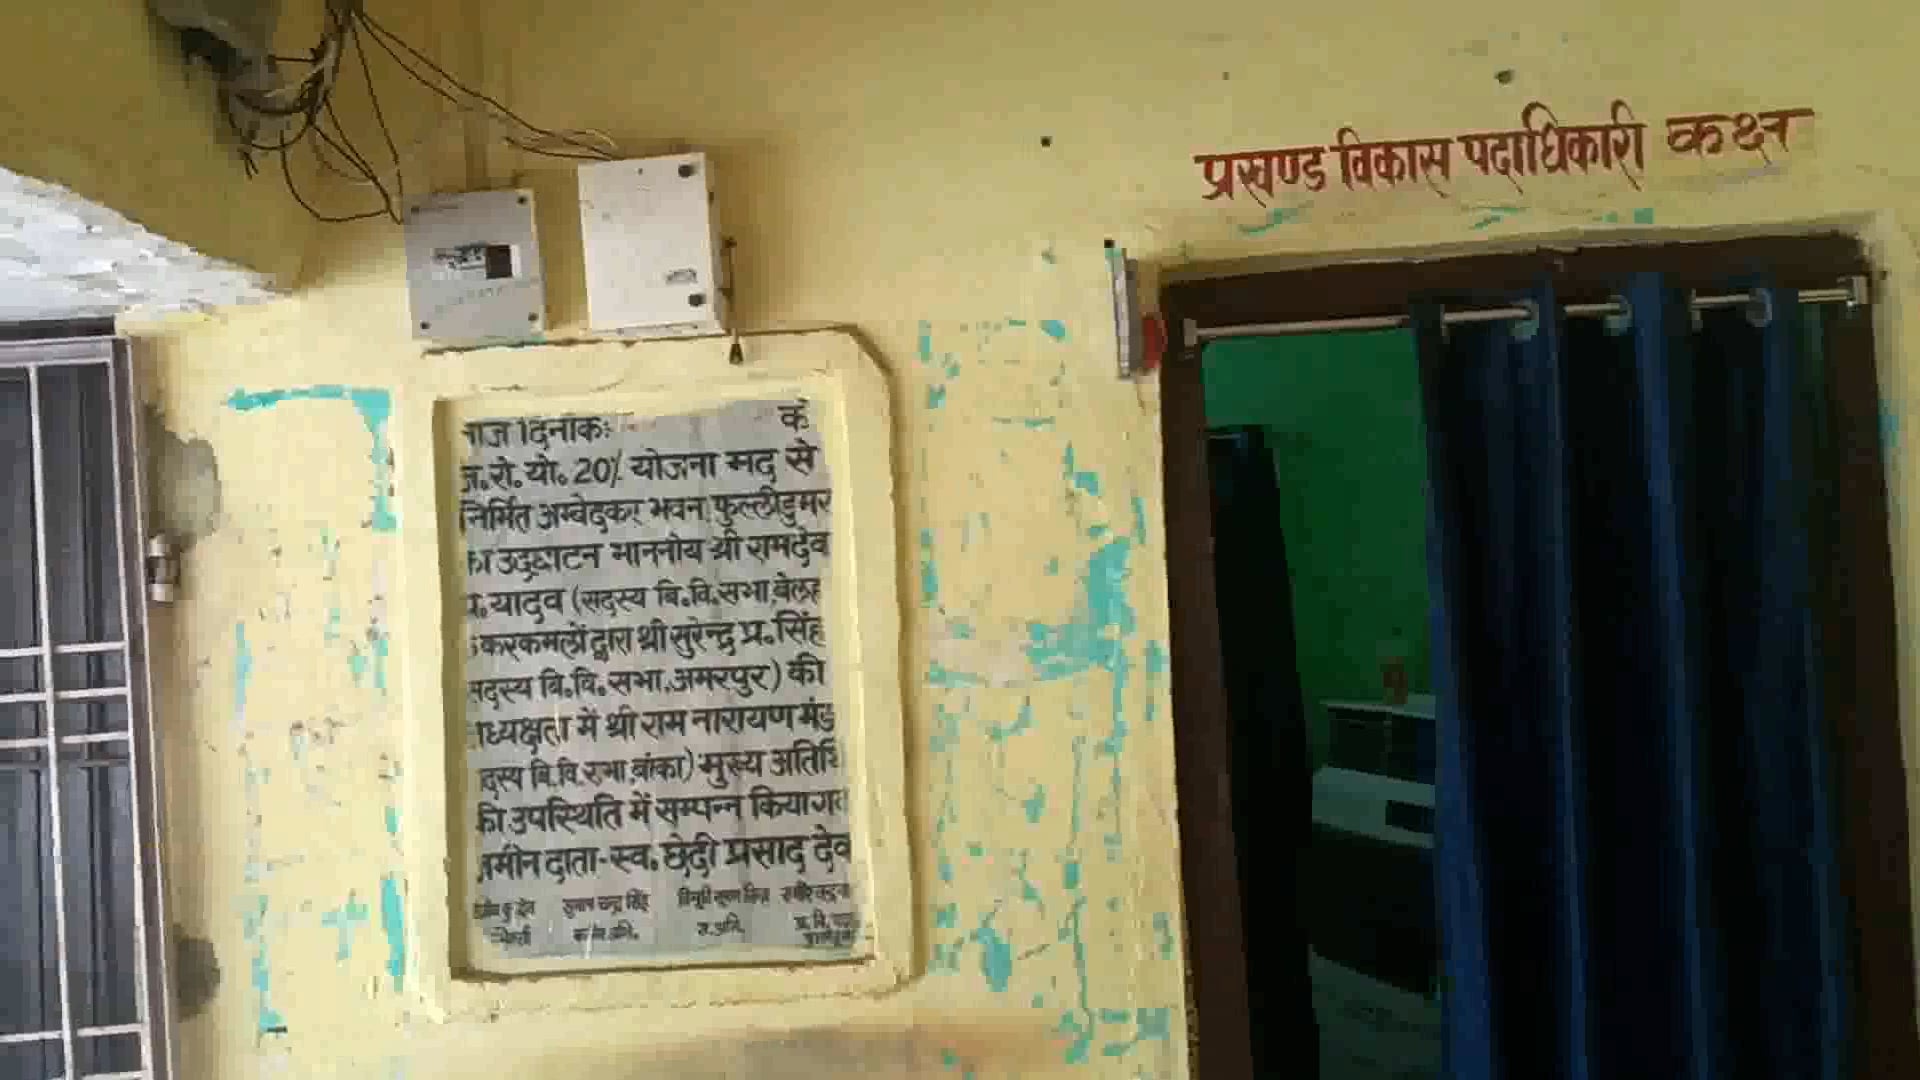 प्रखण्ड विकास पदाधिकारी कक्ष
दिनांक: के
ज.रो.यो. 20% योजना मद से
निर्मित अम्बेदकर भवन, फुल्लीडुमर
का उद्घाटन माननीय श्री रामदेव
यादव (सदस्य बि.वि.सभा, बेलह
करकमलों द्वारा श्री सुरेन्द्र प्र. सिंह
सदस्य बि.वि.सभा, अमरपुर) की
ध्यक्षता में श्री राम नारायण मंड
दस्य बि.वि.सभा, बांका) मुख्य अतिथि
की उपस्थिति में सम्पन्न किया गया
जमीन दाता-स्व. छेदी प्रसाद देव
सुभाष चन्द्र सिंह